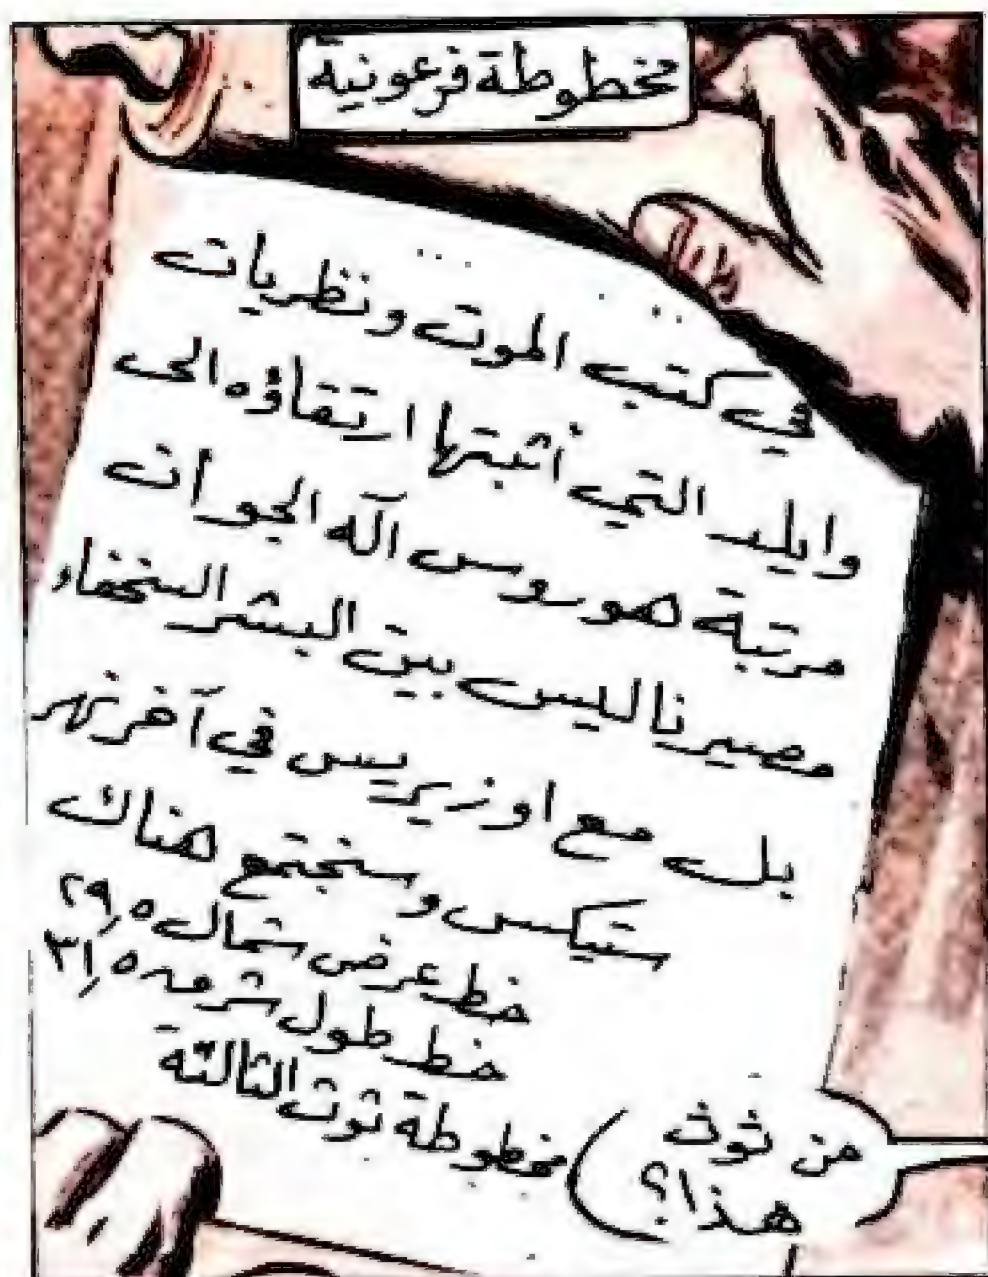 مخطوطة فرعونية
في كتب الموت ونظريات
وايلد التي أثبتها ارتقاؤه الى
مرتبة هوروس آله الجوران
مصيرنا ليس بين البشر السخفاء
بل مع اوزيريس في آخر نهر
ستيكس وسنجتمع هناك
خط عرض شمال ٢٩,٥
خط طول شرق ٣١,٥
مخطوطة ثوث الثالثة
من ثوث
هذا؟